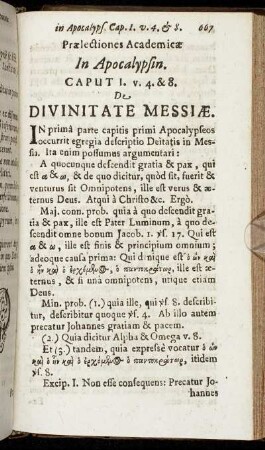 in Apocalyps. Cap. I. v. 4. & 8. 667
Prælectiones Academicæ
In Apocalypsin.
CAPUT I. v. 4. & 8.
De
DIVINITATE MESSIÆ.
IN primâ parte capitis primi Apocalypseos
occurrit egregia descriptio Deitatis in Mes-
sia. Ita enim possumus argumentari:
A quocunque descendit gratia & pax, qui
est α & ω, & de quo dicitur, quòd sit, fuerit &
venturus sit Omnipotens, ille est verus & æ-
ternus Deus. Atqui à Christo &c. Ergò.
Maj. conn. prob. quia à quo descendit gra-
tia & pax, ille est Pater Luminum, à quo de-
scendit omne bonum Jacob. 1. vs. 17. Qui est
α & ω, ille est finis & principium omnium;
adeoque causa prima: Qui denique est ὁ ὢν καὶ
ὁ ἦν καὶ ὁ ἐρχόμενος, ὁ παντοκράτωρ, ille est æ-
ternus, & si unà omnipotens, utique etiam
Deus.
Min. prob. (1.) quia ille, qui vs. 8. describi-
tur, describitur quoque vs. 4. Ab illo autem
precatur Johannes gratiam & pacem.
(2.) Quia dicitur Alpha & Omega v. 8.
Et (3.) tandem, quia expressè vocatur ὁ ὢν
καὶ ὁ ἦν καὶ ὁ ἐρχόμενος ὁ παντοκράτωρ, itidem
vs. 8.
Excip. I. Non esse consequens: Precatur Jo-
hannes